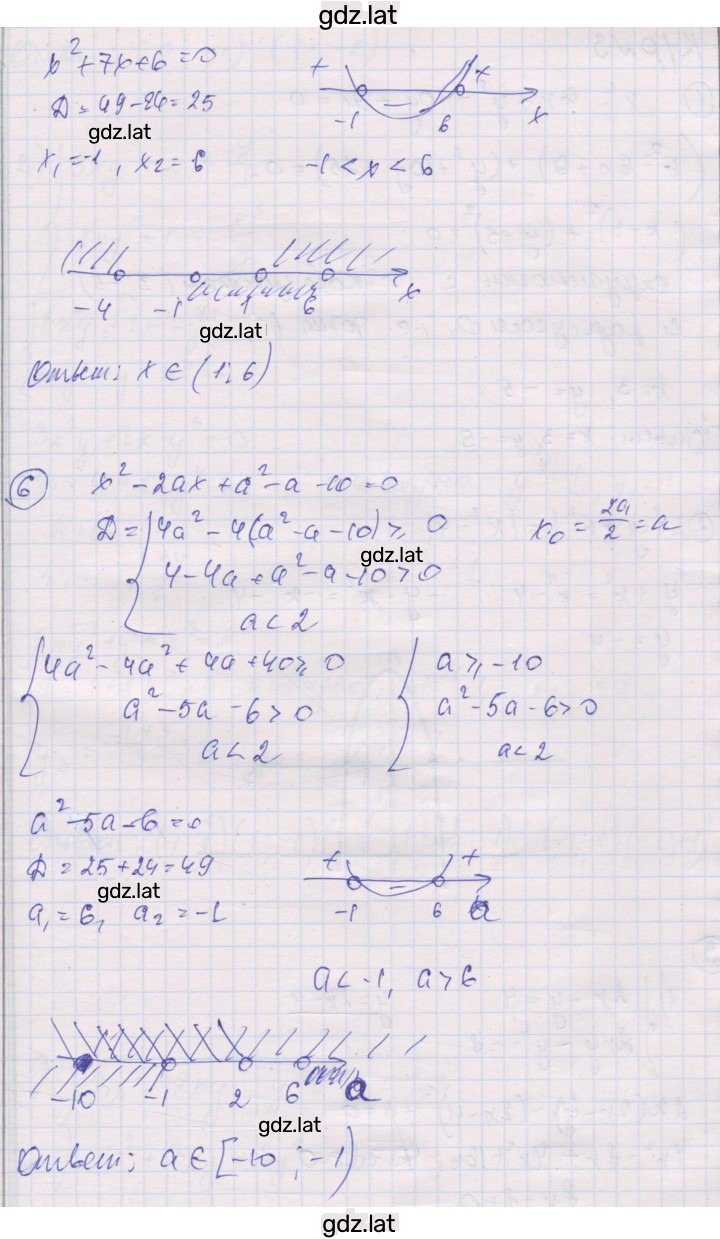 gdz.lat
x² + 7x + 6 = 0
D = 49 - 24 = 25
gdz.lat
x₁ = -1, x₂ = 6
+ - +
-1 6 x
-1 < x < 6
-4 -1 1 6 x
gdz.lat
Ответ: x ∈ (1; 6)
6 x² - 2ax + a² - a - 10 = 0
D = { 4a² - 4(a² - a - 10) ≥ 0
x₀ = 2a/2 = a
gdz.lat
4 - 4a + a² - a - 10 > 0
a < 2
{ 4a² - 4a² + 4a + 40 ≥ 0
a² - 5a - 6 > 0
a < 2
{ a ≥ -10
a² - 5a - 6 > 0
a < 2
a² - 5a - 6 = 0
D = 25 + 24 = 49
gdz.lat
a₁ = 6, a₂ = -1
+ - +
-1 6 a
a < -1, a > 6
-10 -1 2 6 a
gdz.lat
Ответ: a ∈ [-10; -1)
gdz.lat